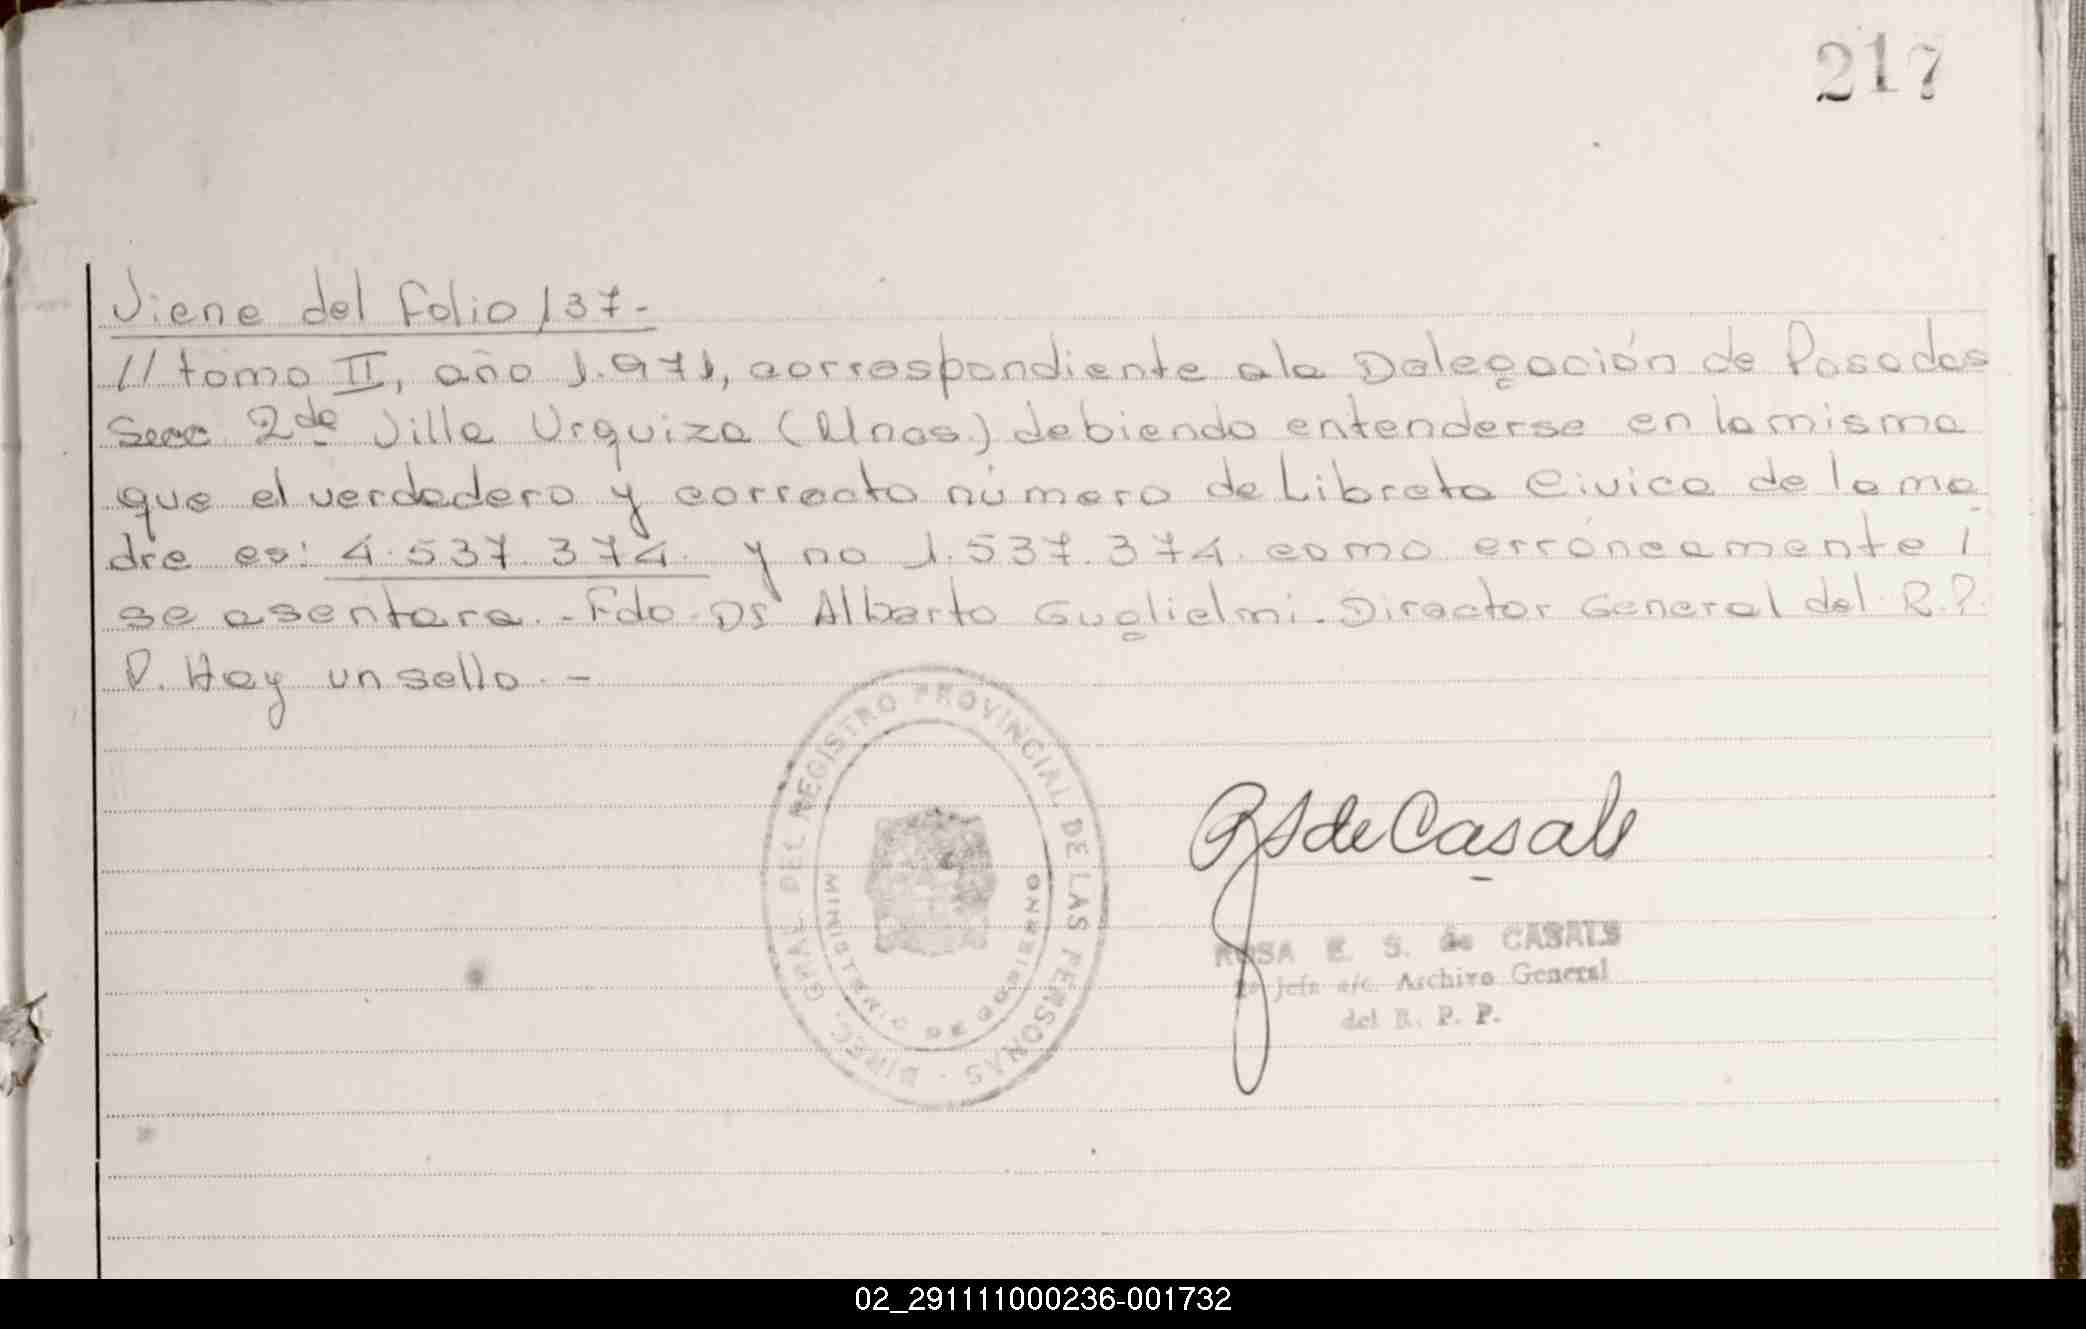 217
Viene del folio 137-
// tomo II, año 1.971, correspondiente a la Delegación de Posadas
Secc 2da Villa Urquiza (Mnes.) debiendo entenderse en la misma
que el verdadero y correcto número de Libreta Civica de la ma
dre es: 4.537.374. y no 1.537.374. como erróneamente
se asentara.- Fdo. Dr Alberto Guglielmi. Director General del R.P.
P. Hay un sello. -
DIREC. GRAL. DEL REGISTRO PROVINCIAL DE LAS PERSONAS
MINISTERIO DE GOBIERNO
RS de Casals
ROSA E. S. de CASALS
Archivo General
del R. P. P.
02_291111000236-001732